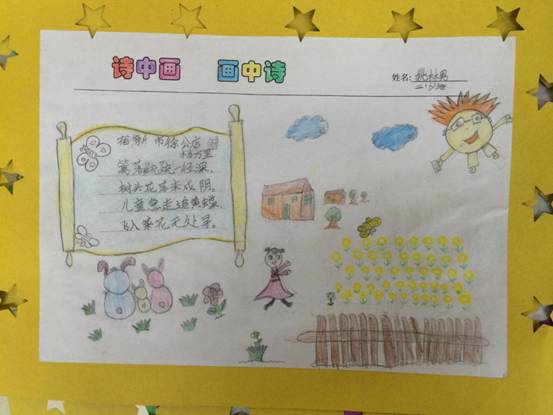 诗中画 画中诗
姓名:
宿新市徐公店
杨万里
篱落疏疏一径深,
树头花落未成阴。
儿童急走追黄蝶,
飞入菜花无处寻。